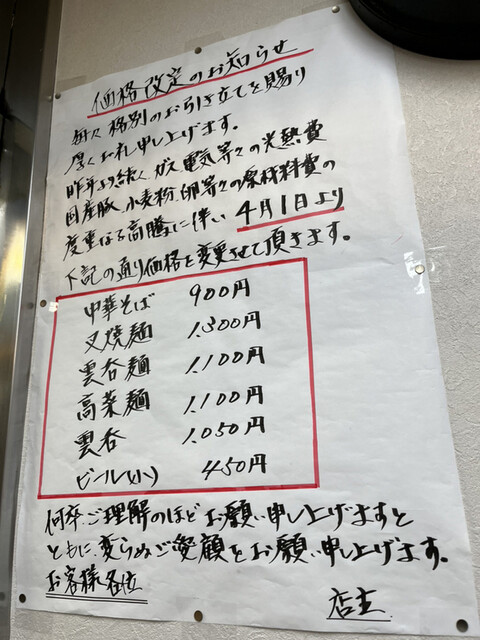 価格改定のお知らせ
毎々格別のお引き立てを賜り
厚くお礼申し上げます。
昨年より続くガス、電気等々の光熱費
国産豚、小麦粉、卵等々の原材料費の
度重なる高騰に伴い 4月1日より
下記の通り価格を変更させて頂きます。
中華そば 900円
叉焼麺 1.300円
雲呑麺 1.100円
高菜麺 1.100円
雲呑 1.050円
ビール(小) 450円
何卒、ご理解のほどお願い申し上げますと
ともに、変らぬご愛顧をお願い申し上げます。
お客様各位
店主